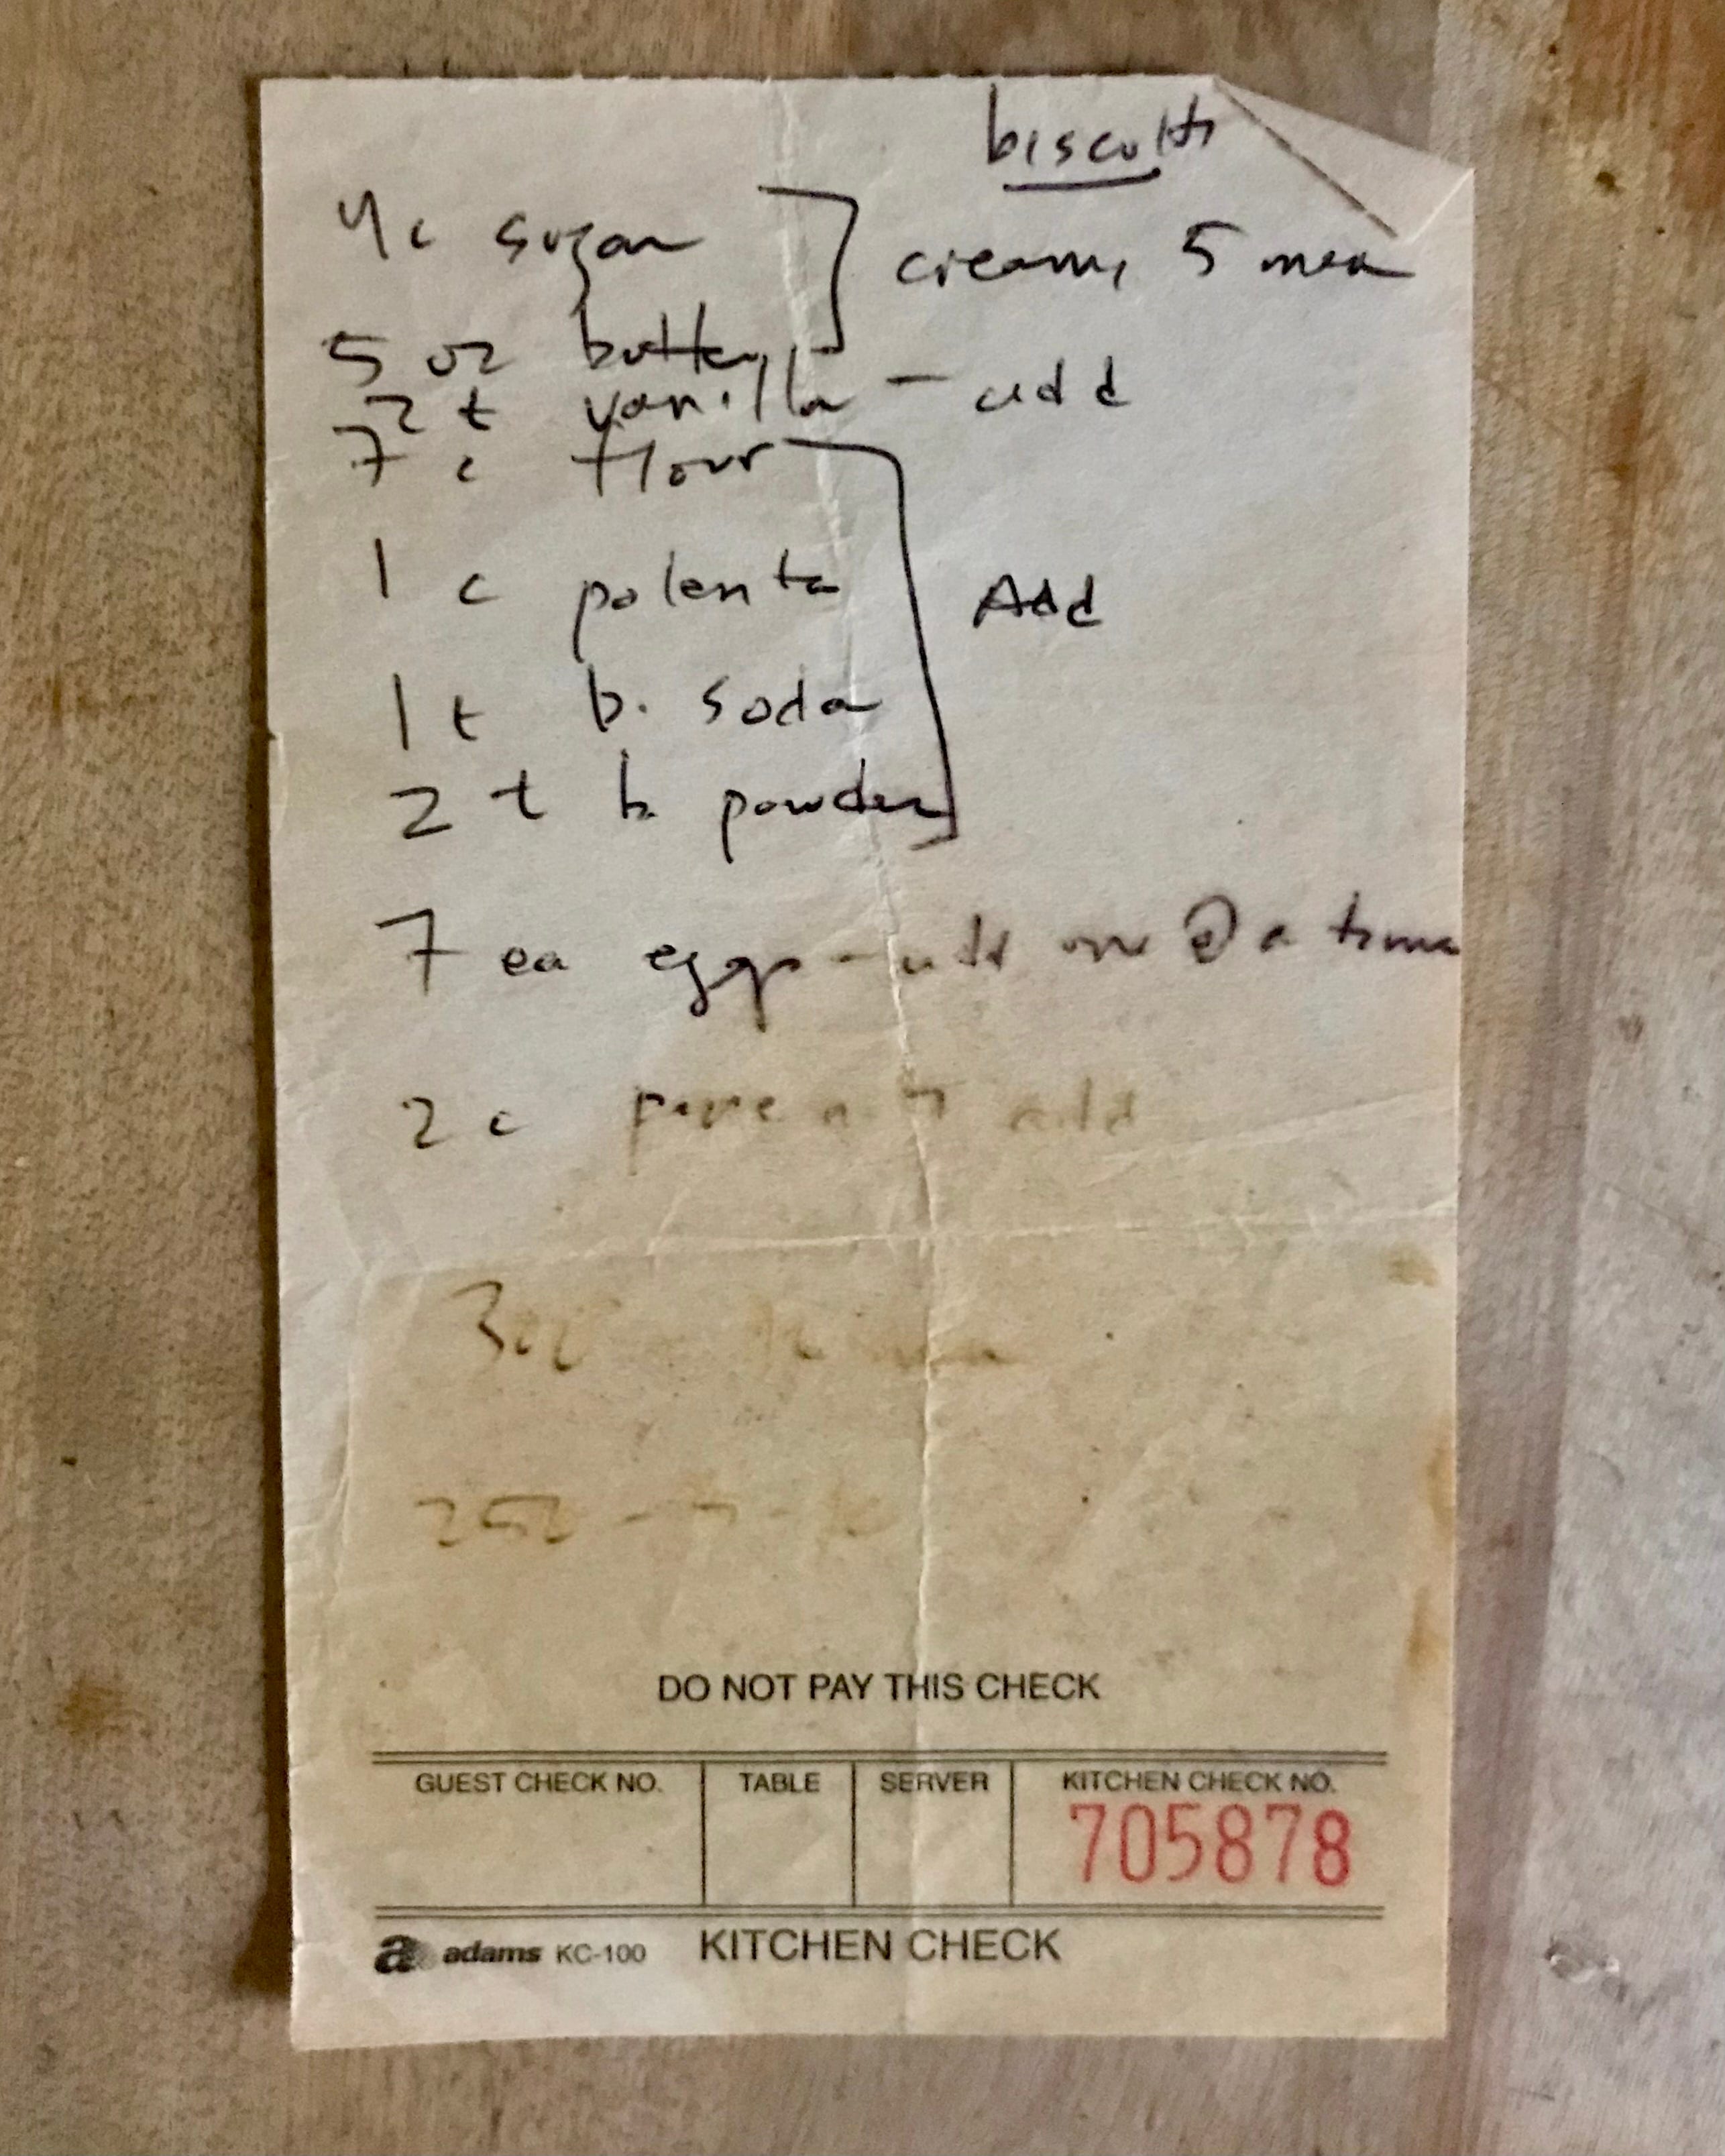 biscotti
4 c sugar
cream, 5 min
5 oz butter
2 t vanilla - add
7 c flour
1 c polenta
Add
1 t b. soda
2 t b. powder
7 ea eggs - add one @ a time
2 c pine nuts add
300
250
DO NOT PAY THIS CHECK
GUEST CHECK NO. TABLE SERVER KITCHEN CHECK NO.
705878
a adams KC-100 KITCHEN CHECK